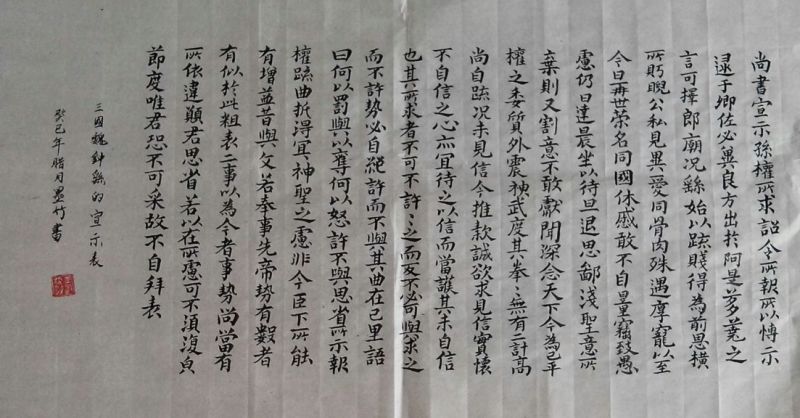 尚書宣示孫權所求詔令所報所以博示
逮于卿佐必冀良方出於阿是芻蕘之
言可擇郎廟況繇始以疏賤得為前恩橫
所盻睨公私見異愛同骨肉殊遇厚寵以至
今日再世榮名同國休慼敢不自量竊致愚
慮仍日達晨坐以待旦退思鄙淺聖意所
棄則又割意不敢獻聞深念天下今為已平
權之委質外震神武度其拳〻無有二計高
尚自疏況未見信今推款誠欲求見信實懷
不自信之心亦宜待之以信而當護其未自信
也其所求者不可不許〻之而反不必可與求之
而不許勢必自絕許而不與其曲在己里語
曰何以罰與以奪何以怒許不與思省所示報
權疏曲折得宜神聖之慮非今臣下所能
有增益昔與文若奉事先帝勢有數者
有似於此粗表二事以為今者事勢尚當有
所依違願君思省若以在所慮可不須復貞
節度唯君恐不可采故不自拜表
三國魏鍾繇的宣示表
癸巳年腊月墨竹書